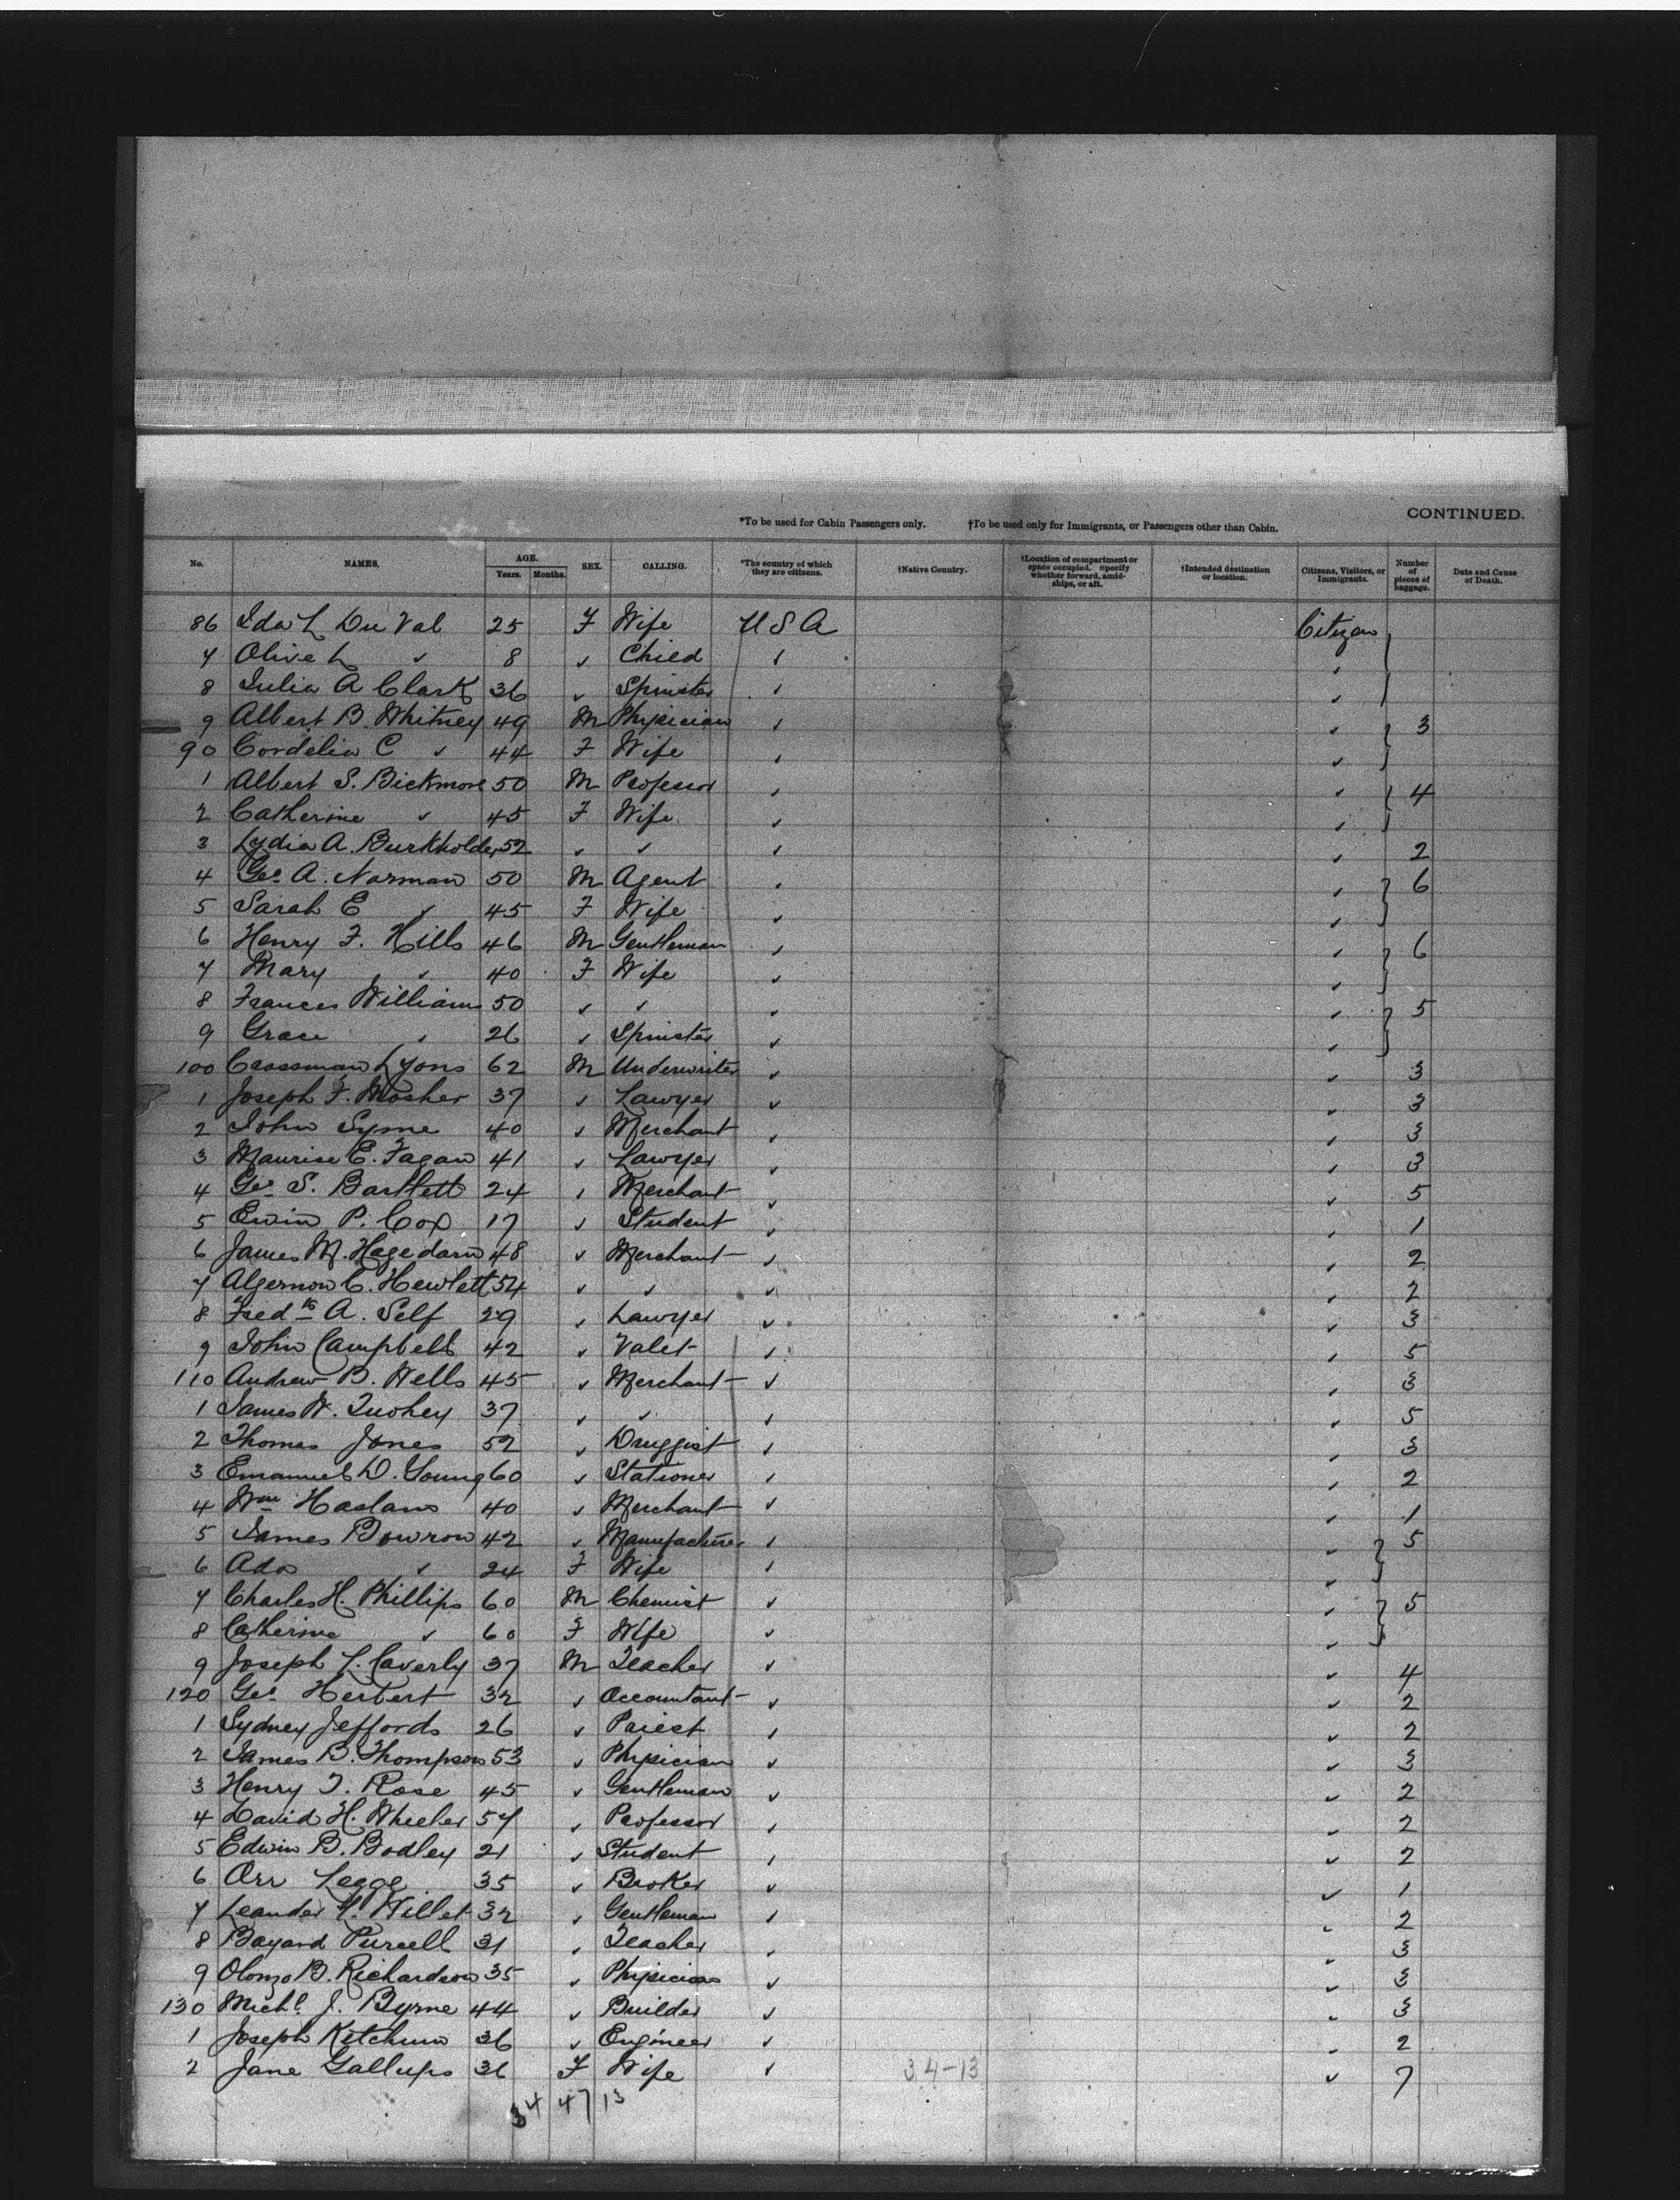 CONTINUED.
*To be used for Cabin Passengers only. †To be used only for Immigrants, or Passengers other than Cabin.
No. NAMES. AGE. Years. Months. SEX. CALLING. *The country of which they are citizens. †Native Country. †Location of compartment or space occupied. Specify whether forward, amidships, or aft. †Intended destination or location. Citizens, Visitors, or Immigrants. Number of pieces of baggage. Date and Cause of Death.
86 Ida L Du Val 25 F Wife U S A Citizen
7 Olive L " 8 " Child " "
8 Julia A Clark 36 " Spinster " "
9 Albert B. Whitney 49 M Physician " " 3
90 Cordelia C " 44 F Wife " "
1 Albert S. Bickmore 50 M Professor " " 4
2 Catherine " 45 F Wife " "
3 Lydia A. Burkholder 52 " " " " 2
4 Geo. A. Norman 50 M Agent " " 6
5 Sarah E " 45 F Wife " "
6 Henry F. Hills 46 M Gentleman " " 6
7 Mary " 40 F Wife " "
8 Frances Williams 50 " " " " 5
9 Grace " 26 " Spinster " "
100 Crossman Lyons 62 M Underwriter " " 3
1 Joseph F. Mosher 37 " Lawyer " " 3
2 John Syme 40 " Merchant " " 3
3 Maurice E. Fagan 41 " Lawyer " " 3
4 Geo. S. Bartlett 24 " Merchant " " 5
5 Erwin P. Cox 17 " Student " " 1
6 James M. Hagedarn 48 " Merchant " " 2
7 Algernon C. Hewlett 54 " " " " 2
8 Fredk A. Self 29 " Lawyer " " 3
9 John Campbell 42 " Valet " " 5
110 Andrew B. Wells 45 " Merchant " " 3
1 James W. Tuohey 37 " " " " 5
2 Thomas Jones 52 " Druggist " " 3
3 Emanuel D. Young 60 " Stationer " " 2
4 Wm Haslam 40 " Merchant " " 1
5 James Bowron 42 " Manufacturer " " 5
6 Ada " 24 F Wife " "
7 Charles H. Phillips 60 M Chemist " " 5
8 Catherine " 60 F Wife " "
9 Joseph L. Caverly 37 M Teacher " " 4
120 Geo. Herbert 32 " Accountant " " 2
1 Sydney Jeffords 26 " Priest " " 2
2 James B. Thompson 53 " Physician " " 3
3 Henry T. Rose 45 " Gentleman " " 2
4 David H. Wheeler 57 " Professor " " 2
5 Edwin B. Bodley 21 " Student " " 2
6 Orr Legge 35 " Broker " " 1
7 Leander Willet 32 " Gentleman " " 2
8 Bayard Purcell 31 " Teacher " " 3
9 Olonzo B. Richardson 35 " Physician " " 3
130 Michl. J. Byrne 44 " Builder " " 3
1 Joseph Ketchum 36 " Engineer " " 2
2 Jane Gallups 36 F Wife " 34-13 " 7
34 47 13